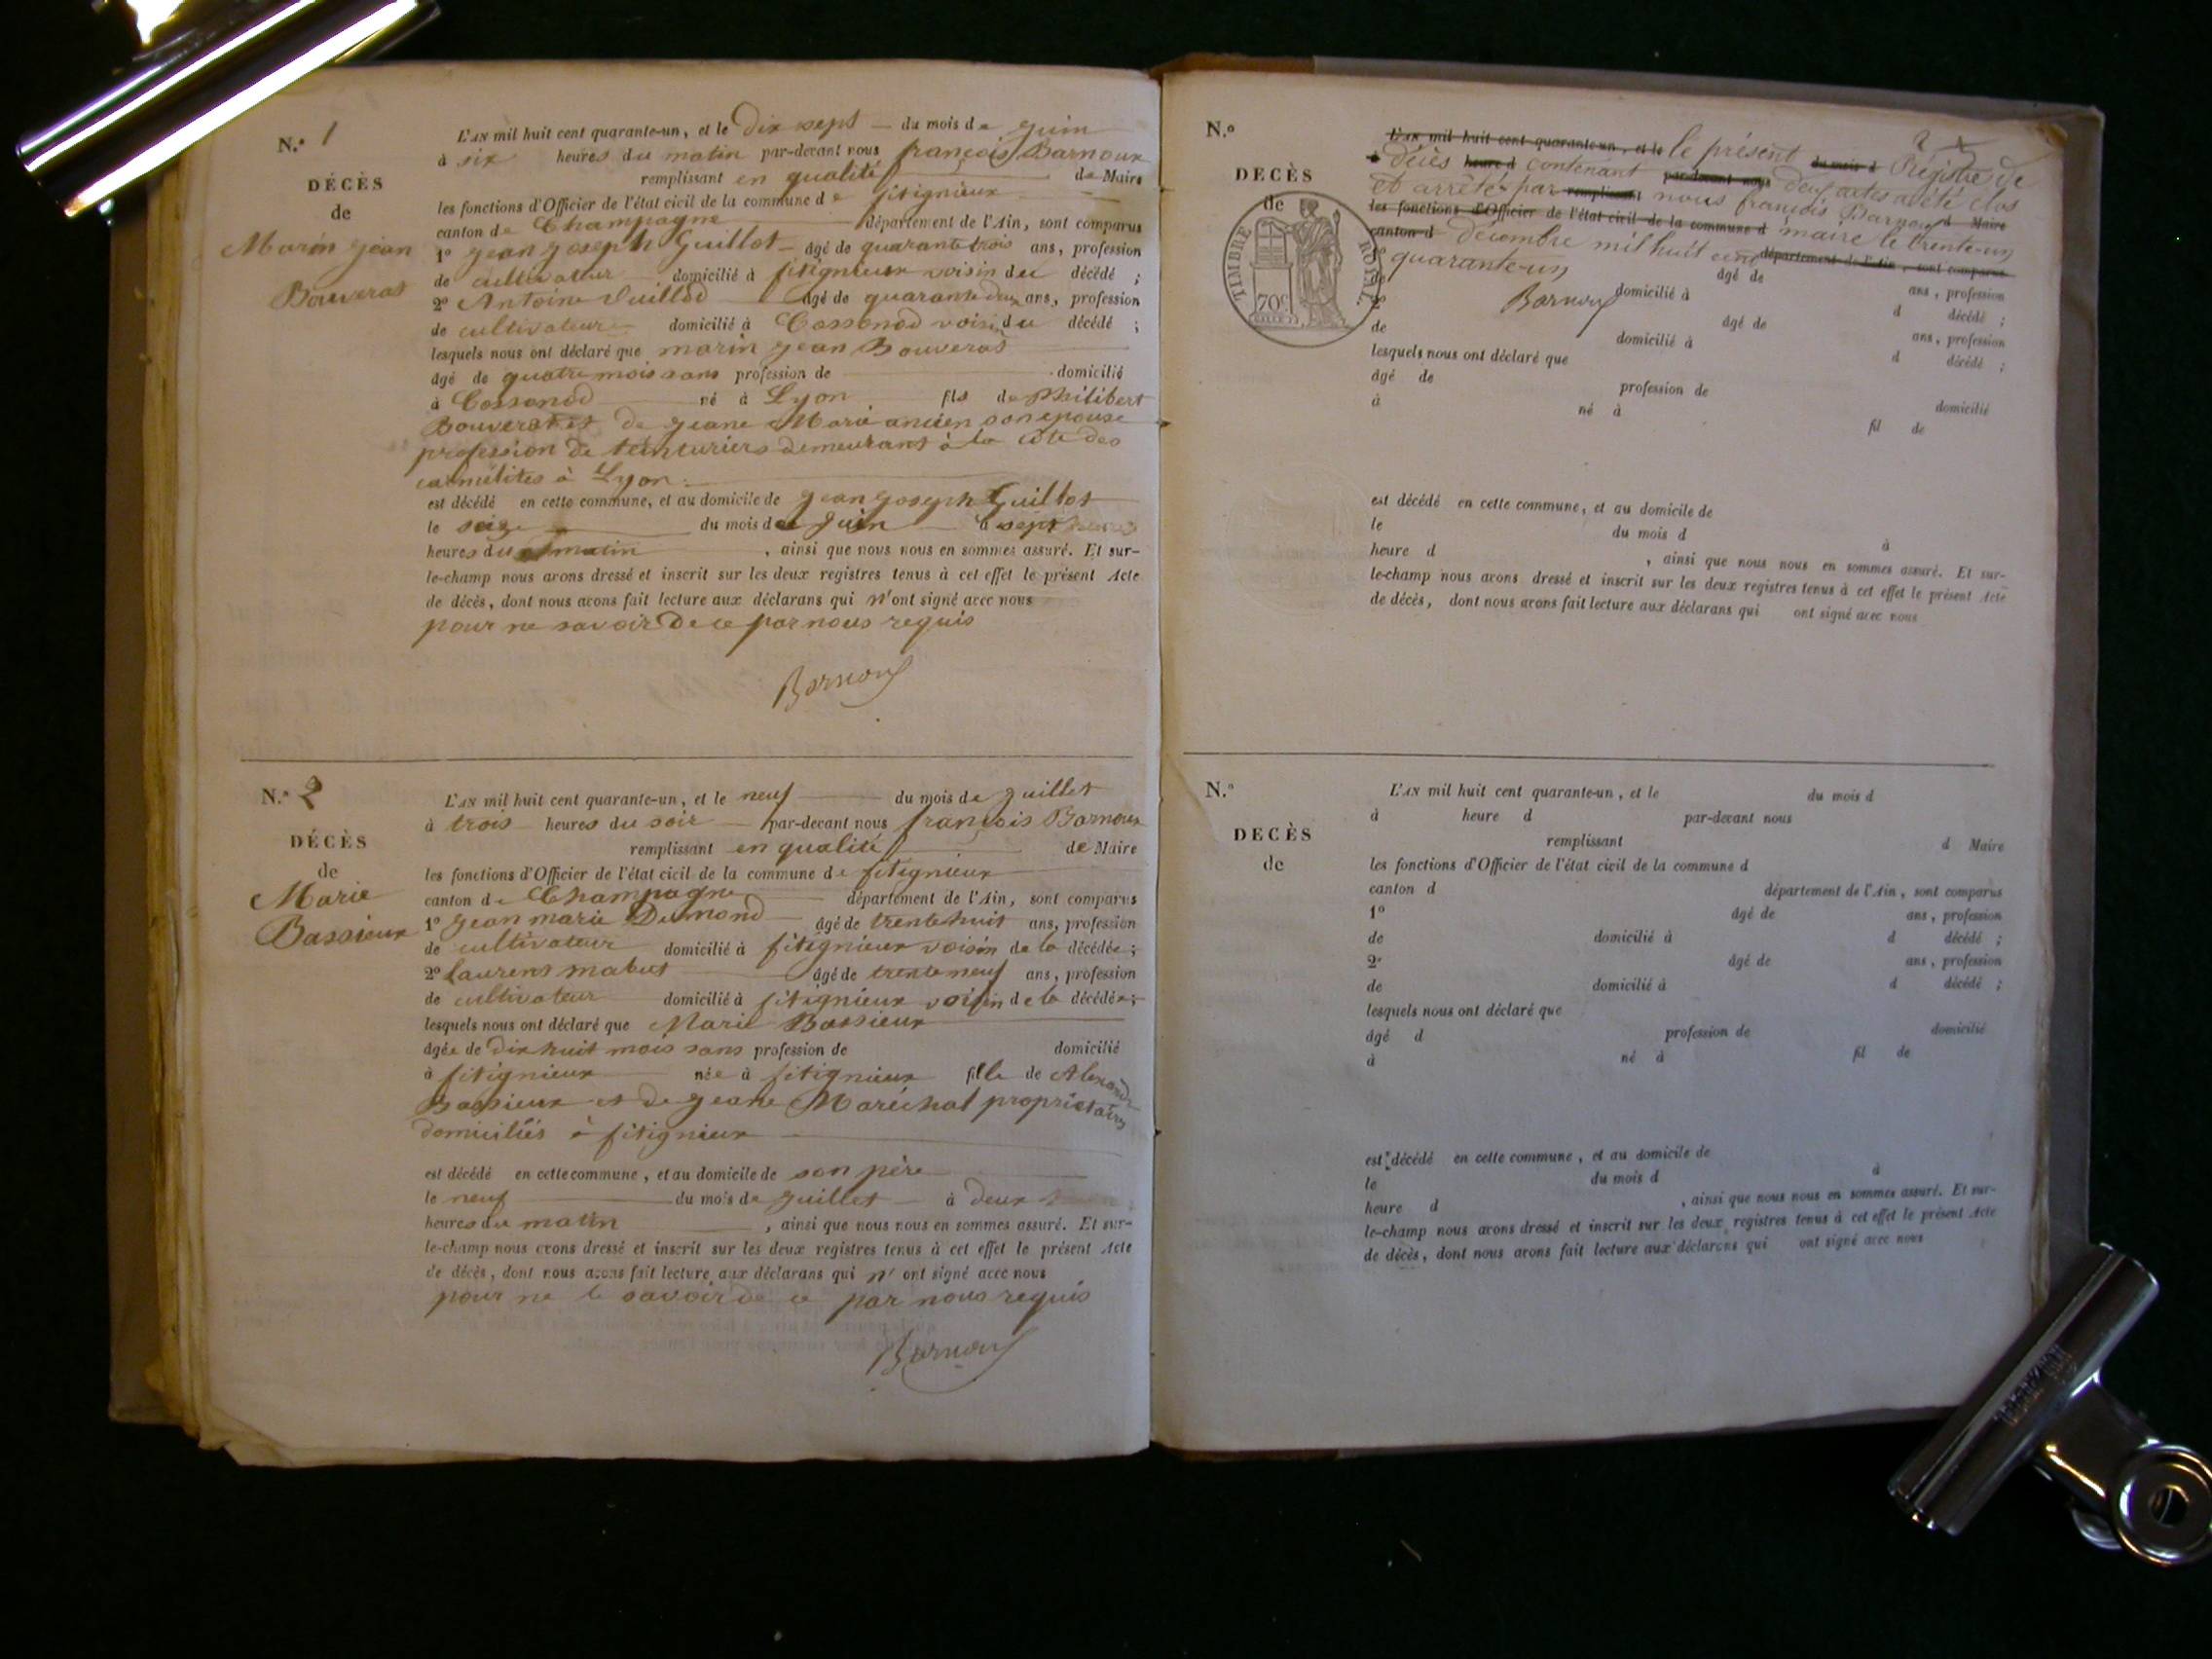 N.° 1
DÉCÈS
de
Marin jean
Bouverat
L'AN mil huit cent quarante-un, et le dix sept du mois de juin
à six heures du matin par-devant nous françois Barnoux
remplissant en qualité de Maire
les fonctions d'Officier de l'état civil de la commune de fitignieux
canton de Champagne département de l'Ain, sont comparus
1° jean joseph Guillot âgé de quarante trois ans, profession
de cultivateur domicilié à fitignieux voisin du décédé ;
2° Antoine Guillod âgé de quarante deux ans, profession
de cultivateur domicilié à Cossonod voisin du décédé ;
lesquels nous ont déclaré que marin jean Bouverat
âgé de quatre mois sans profession de domicilié
à Cossonod né à Lyon fils de Philibert
Bouverat et de jeane Marie ancien son epouse
profession de teinturiers demeurans à la côte des
carmélites à Lyon
est décédé en cette commune, et au domicile de jean joseph Guillot
le seize du mois de juin à sept
heures du matin , ainsi que nous nous en sommes assuré. Et sur-
le-champ nous avons dressé et inscrit sur les deux registres tenus à cet effet le présent Acte
de décès, dont nous avons fait lecture aux déclarans qui n'ont signé avec nous
pour ne savoir de ce par nous requis
Barnoux
N.° 2
DÉCÈS
de
Marie
Bassieux
L'AN mil huit cent quarante-un, et le neuf du mois de juillet
à trois heures du soir par-devant nous françois Barnoux
remplissant en qualité de Maire
les fonctions d'Officier de l'état civil de la commune de fitignieux
canton de Champagne département de l'Ain, sont comparus
1° jean marie Dumond âgé de trente huit ans, profession
de cultivateur domicilié à fitignieux voisin de la décédée ;
2° laurens âgé de trente neuf ans, profession
de cultivateur domicilié à fitignieux voisin de la décédée ;
lesquels nous ont déclaré que Marie Bassieux
âgée de dix huit mois sans profession de domicilié
à fitignieux née à fitignieux fille de Alexandre
Bassieux et de jeane Maréchal propriétaires
domiciliés à fitignieux
est décédé en cette commune, et au domicile de son père
le neuf du mois de juillet à deux
heures du matin , ainsi que nous nous en sommes assuré. Et sur-
le-champ nous avons dressé et inscrit sur les deux registres tenus à cet effet le présent Acte
de décès, dont nous avons fait lecture aux déclarans qui n'ont signé avec nous
pour ne le savoir de ce par nous requis
Barnoux
N.°
DECÈS
de
TIMBRE ROYAL
70c
L'AN mil huit cent quarante-un, et le le présent du mois d Régistre de
décès heure d contenant par-devant nous deux actes a été clos
et arrêté par remplissant nous françois Barnoux d Maire
les fonctions d'Officier de l'état civil de la commune d maire le trente-un
canton d décembre mil huit cent département de l'Ain, sont comparus
quarante-un âgé de ans, profession
de Barnoux domicilié à d décédé ;
2° âgé de ans, profession
de domicilié à d décédé ;
lesquels nous ont déclaré que
âgé de profession de domicilié
à né à fil de
est décédé en cette commune, et au domicile de
le du mois d à
heure d , ainsi que nous nous en sommes assuré. Et sur-
le-champ nous avons dressé et inscrit sur les deux registres tenus à cet effet le présent Acte
de décès, dont nous avons fait lecture aux déclarans qui ont signé avec nous
N.°
DECÈS
de
L'AN mil huit cent quarante-un, et le du mois d
à heure d par-devant nous
remplissant d Maire
les fonctions d'Officier de l'état civil de la commune d
canton d département de l'Ain, sont comparus
1° âgé de ans, profession
de domicilié à d décédé ;
2° âgé de ans, profession
de domicilié à d décédé ;
lesquels nous ont déclaré que
âgé d profession de domicilié
à né à fil de
est décédé en cette commune, et au domicile de
le du mois d à
heure d , ainsi que nous nous en sommes assuré. Et sur-
le-champ nous avons dressé et inscrit sur les deux registres tenus à cet effet le présent Acte
de décès, dont nous avons fait lecture aux déclarans qui ont signé avec nous